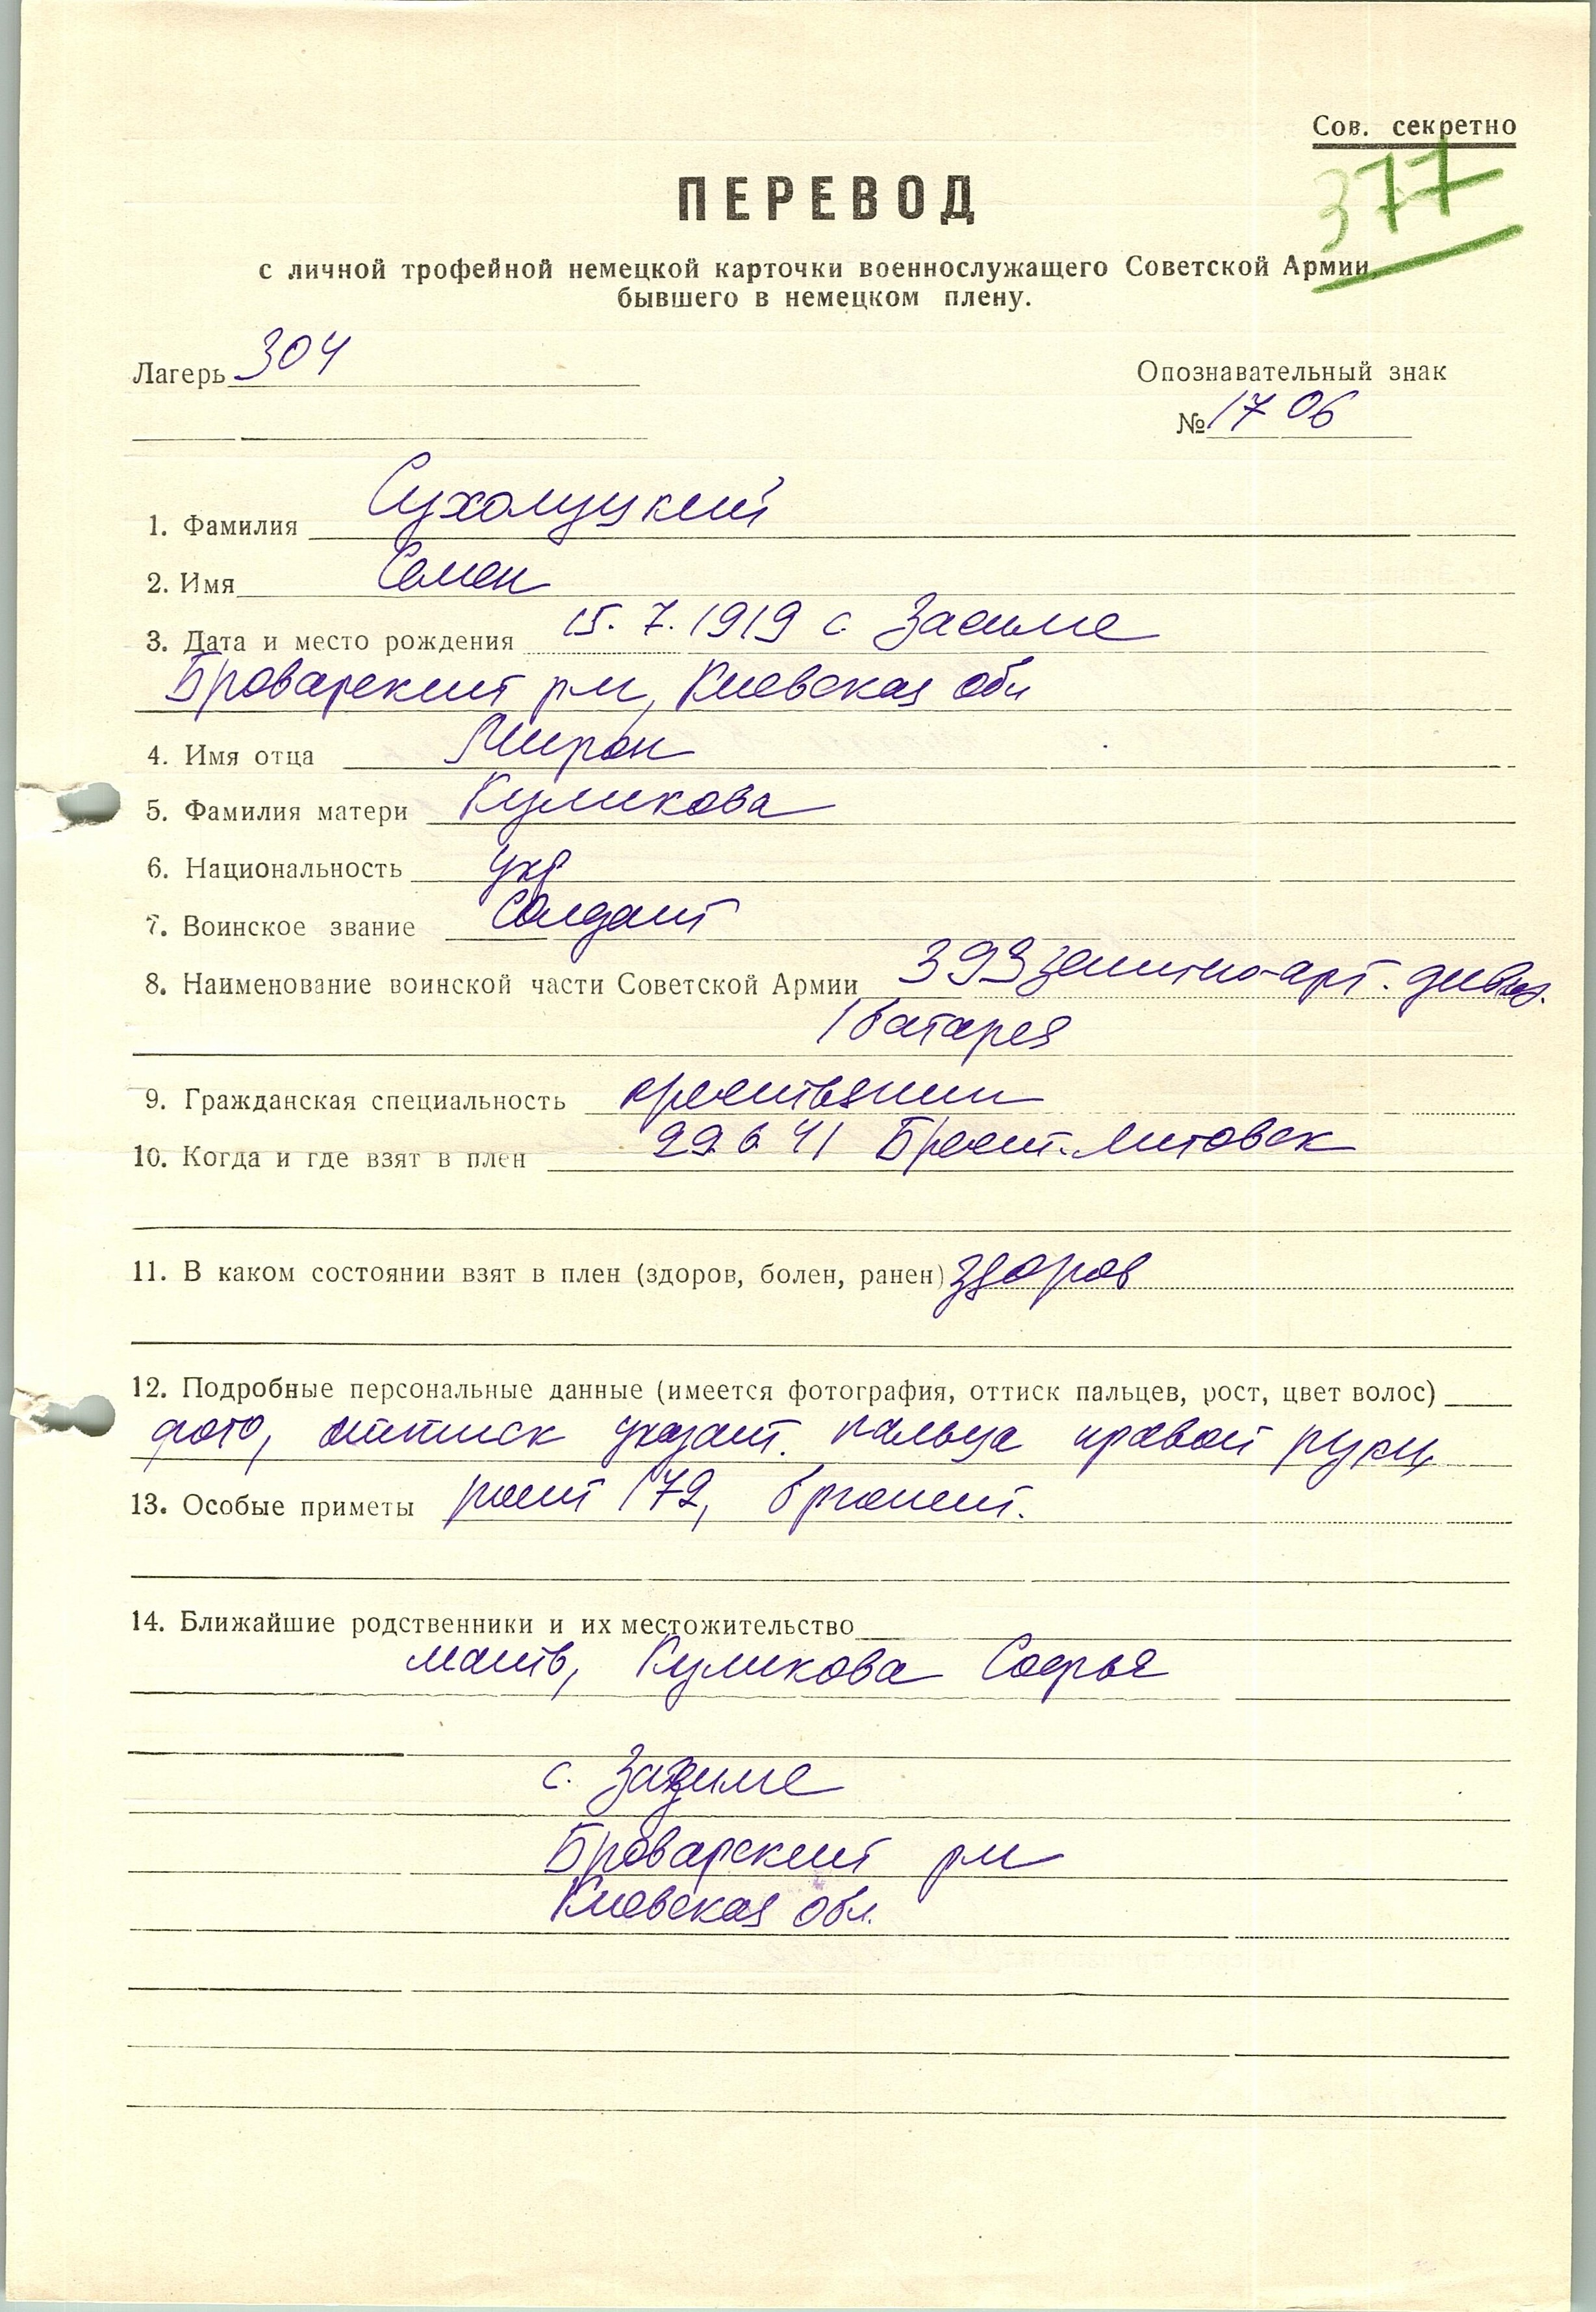 Сов. секретно
377
ПЕРЕВОД
с личной трофейной немецкой карточки военнослужащего Советской Армии,
бывшего в немецком плену.
Лагерь 304
Опознавательный знак
№ 1706
1. Фамилия Сухолуцкий
2. Имя Семен
3. Дата и место рождения 15. 7. 1919 с. Засиме
Броварский р-н, Киевская обл
4. Имя отца Мирон
5. Фамилия матери Куликова
6. Национальность укр
7. Воинское звание Солдат
8. Наименование воинской части Советской Армии 393 зенитно-арт. дивиз.
1 батарея
9. Гражданская специальность крестьянин
10. Когда и где взят в плен 29 6 41 Брест-Литовск
11. В каком состоянии взят в плен (здоров, болен, ранен) здоров
12. Подробные персональные данные (имеется фотография, оттиск пальцев, рост, цвет волос)
фото, оттиск указат. пальца правой руки,
13. Особые приметы рост 172, брюнет.
14. Ближайшие родственники и их местожительство
мать, Куликова Софья
с. Зазиме
Броварский р-н
Киевская обл.